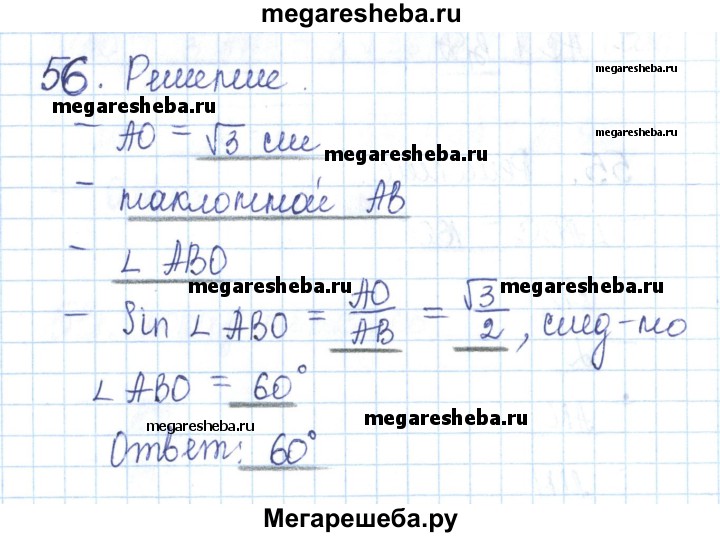 megaresheba.ru
56. Решение.
megaresheba.ru
megaresheba.ru
megaresheba.ru
– AO = √3 см
megaresheba.ru
– наклонной AB
– ∠ ABO
megaresheba.ru
megaresheba.ru
– Sin ∠ ABO = AO/AB = √3/2, след-но
∠ ABO = 60°
megaresheba.ru
megaresheba.ru
Ответ: 60°
Мегарешеба.ру